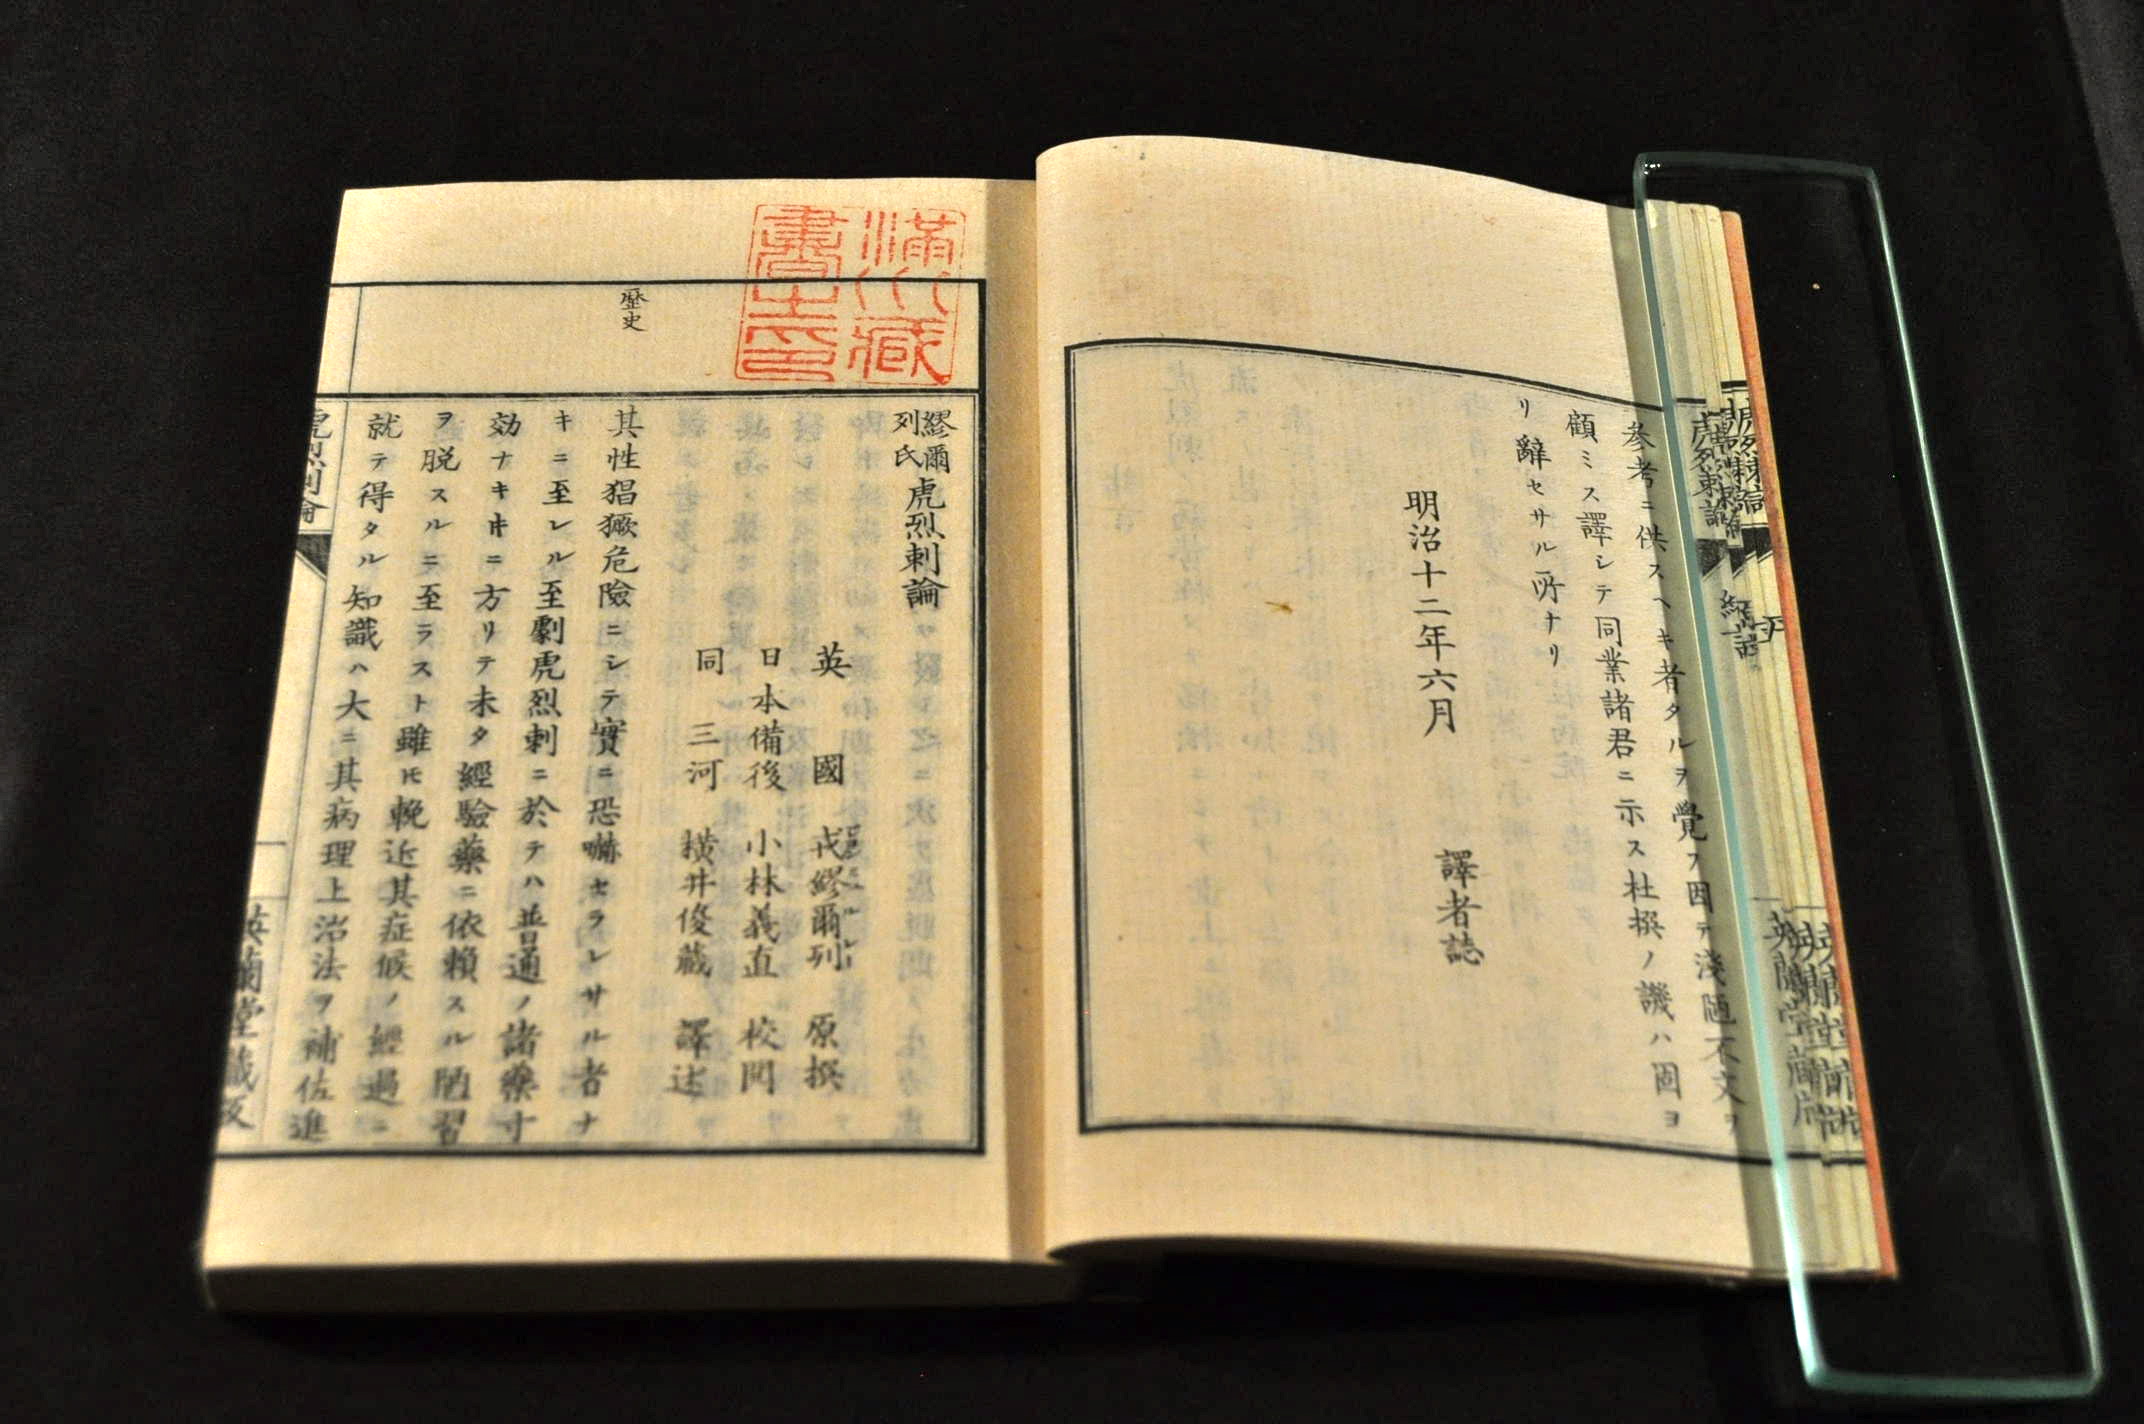 參考ニ供スヘキ者タルヲ覺フ因テ淺陋不文ヲ
顧ミス譯シテ同業諸君ニ示ス杜撰ノ譏ハ固ヨ
リ辭セサル所ナリ
明治十二年六月
譯者誌
繆爾
列氏
虎烈剌論
英國 戎繆爾列 原撰
日本備後 小林義直 校閲
同 三河 橫井俊藏 譯述
歷史
其性猖獗危險ニシテ實ニ恐嚇セラレサル者ナ
キニ至レル至劇虎烈剌ニ於テハ普通ノ諸藥寸
効ナキ𪜈ニ方リテ未タ經驗藥ニ依賴スル陋習
ヲ脱スルニ至ラスト雖𪜈輓近其症候ノ經過ニ
就テ得タル知識ハ大ニ其病理上治法ヲ補佐進
虎烈剌論
英蘭堂藏版
滿川藏
書之印